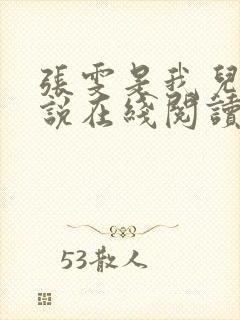 張雯是我兒
說在綫閱讀
53散人